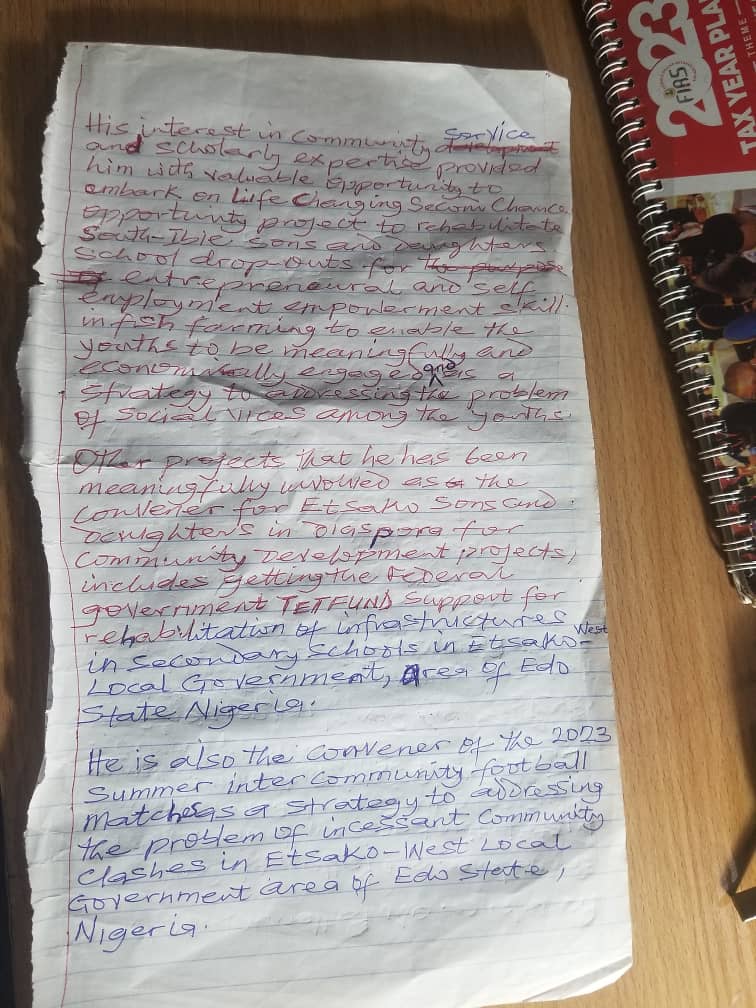 His interest in community service
and scholarly expertise provided
him with valuable opportunity to
embark on Life Changing Second Chance
opportunity project to rehabilitate
South-Ibie sons and daughters
school drop-outs for the purpose
entrepreneural and self
employment empowerment skill
in fish farming to enable the
youths to be meaningfully and
economically engaged and as a
strategy to addressing the problem
of social vices among the youths.
Other projects that he has been
meaningfully involved as the
convener for Etsako sons and
Daughters in Diaspora for
Community Development projects,
includes getting the Federal
government TETFUND support for
rehabilitation of infrastructures
in Secondary Schools in Etsako-West
Local Government, area of Edo
State Nigeria.
He is also the convener of the 2023
Summer inter community football
matches as a strategy to addressing
the problem of incessant community
clashes in Etsako-West Local
Government area of Edo State,
Nigeria.
2023
FIRS
TAX YEAR PLA
THEME